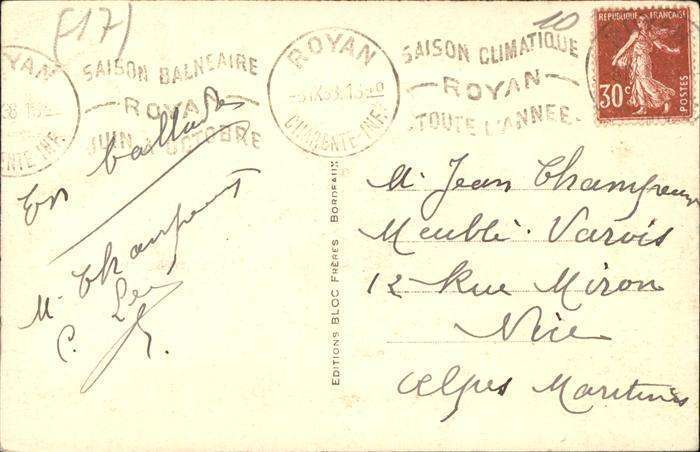 (17)
10
ROYAN
SAISON BALNEAIRE
ROYAN
JUIN OCTOBRE
ROYAN
CHARENTE-INF.
SAISON CLIMATIQUE
ROYAN
TOUTE L'ANNEE
REPUBLIQUE FRANÇAISE
30c
POSTES
En ballade
M. Champeux
EDITIONS BLOC FRÈRES BORDEAUX
M. Jean Champeux
Meublé Varvis
12 Rue Miron
Nice
Alpes Maritimes